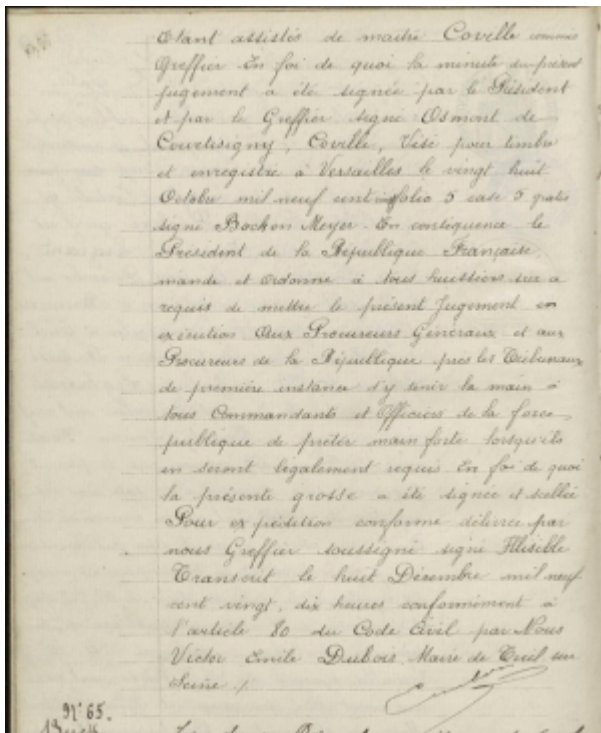 étant assistés de maître Coville commis
Greffier En foi de quoi la minute du présent
jugement a été signée par le Président
et par le Greffier signé Osmont de
Courtisigny, Coville, Visé pour timbre
et enregistré à Versailles le vingt huit
Octobre mil neuf cent folio 5 case 5 gratis
signé Meyer. En conséquence le
Président de la République Française,
mande et ordonne à tous huissiers sur ce
requis de mettre le présent Jugement en
exécution Aux Procureurs Généraux et aux
Procureurs de la République près les Tribunaux
de première instance d'y tenir la main à
tous Commandants et Officiers de la force
publique de prêter main forte lorsqu'ils
en seront légalement requis. En foi de quoi
la présente grosse a été signée et scellée
Pour expédition conforme délivrée par
nous Greffier soussigné signé Illisible
Transcrit le huit Décembre mil neuf
cent vingt, dix heures conformément à
l'article 80 du Code Civil par Nous
Victor Emile Dubois, Maire de Triel sur
Seine ./.
N° 65.